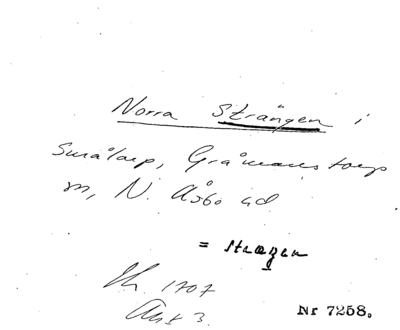 Norra Strängen i
Smålarp, Gråmanstorps
m, N. Åsbo hd
= strægen
1707
3.
Nr 7258.